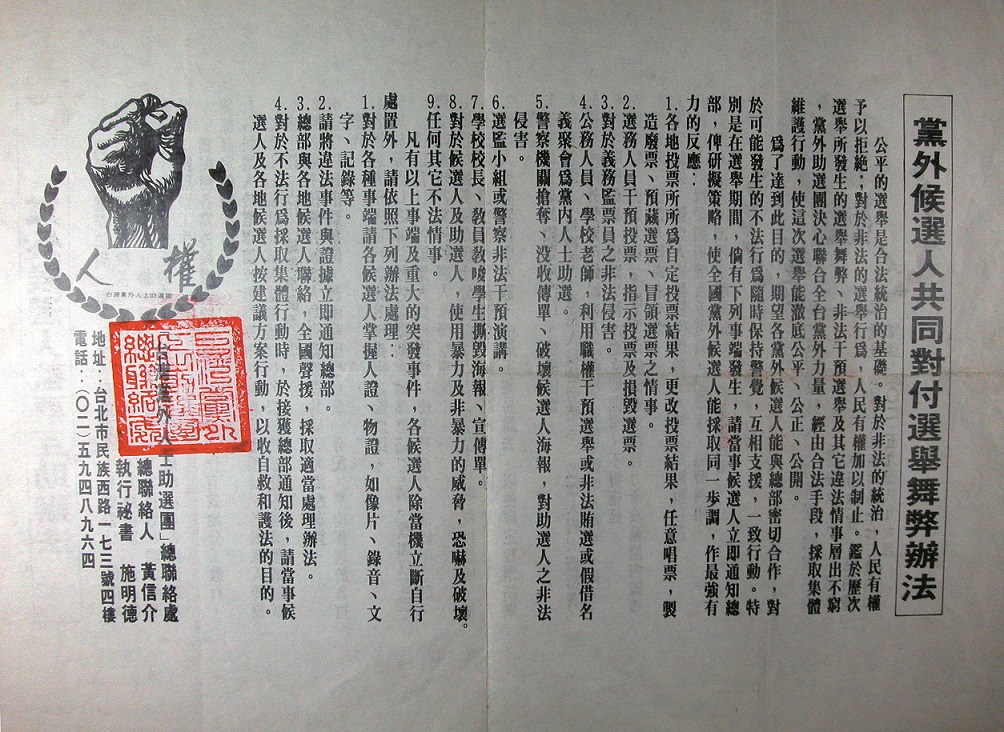 黨外候選人共同對付選舉舞弊辦法
公平的選舉是合法統治的基礎。對於非法的統治，人民有權
予以拒絶；對於非法的選舉行爲，人民有權加以制止。鑑於歷次
選舉所發生的選舉舞弊、非法干預選舉及其它違法情事層出不窮
，黨外助選團決心聯合全台黨外力量，經由合法手段，採取集體
維護行動，使這次選舉能澈底公平、公正、公開。
爲了達到此目的，期望各黨外候選人能與總部密切合作，對
於可能發生的不法行爲隨時保持警覺，互相支援，一致行動。特
別是在選舉期間，倘有下列事端發生，請當事候選人立即通知總
部，俾研擬策略，使全國黨外候選人能採取同一步調，作最強有
力的反應：
1.各地投票所所爲自定投票結果，更改投票結果，任意唱票，製
造廢票、預藏選票、冒領選票之情事。
2.選務人員干預投票，指示投票及損毀選票。
3.對於義務監票員之非法侵害。
4.公務人員、學校老師，利用職權干預選舉或非法賄選或假借名
義聚會爲黨內人士助選。
5.警察機關搶奪、沒收傳單、破壞候選人海報，對助選人之非法
侵害。
6.選監小組或警察非法干預演講。
7.學校校長、教員教唆學生撕毀海報、宣傳單。
8.對於候選人及助選人，使用暴力及非暴力的威脅，恐嚇及破壞。
9.任何其它不法情事。
凡有以上事端及重大的突發事件，各候選人除當機立斷自行
處置外，請依照下列辦法處理：
1.對於各種事端請各候選人掌握人證、物證，如像片、錄音、文
字、記錄等。
2.請將違法事件與證據立即通知總部。
3.總部與各地候選人聯絡，全國聲援，採取適當處理辦法。
4.對於不法行爲採取集體行動時，於接獲總部通知後，請當事候
選人及各地候選人按建議方案行動，以收自救和護法的目的。
人權
台灣黨外人士助選團
「台灣黨外人士助選團」總聯絡處
總聯絡人　黃信介
執行祕書　施明德
地址：台北市民族西路一七三號四樓
電話：（〇二）五九四八九六四